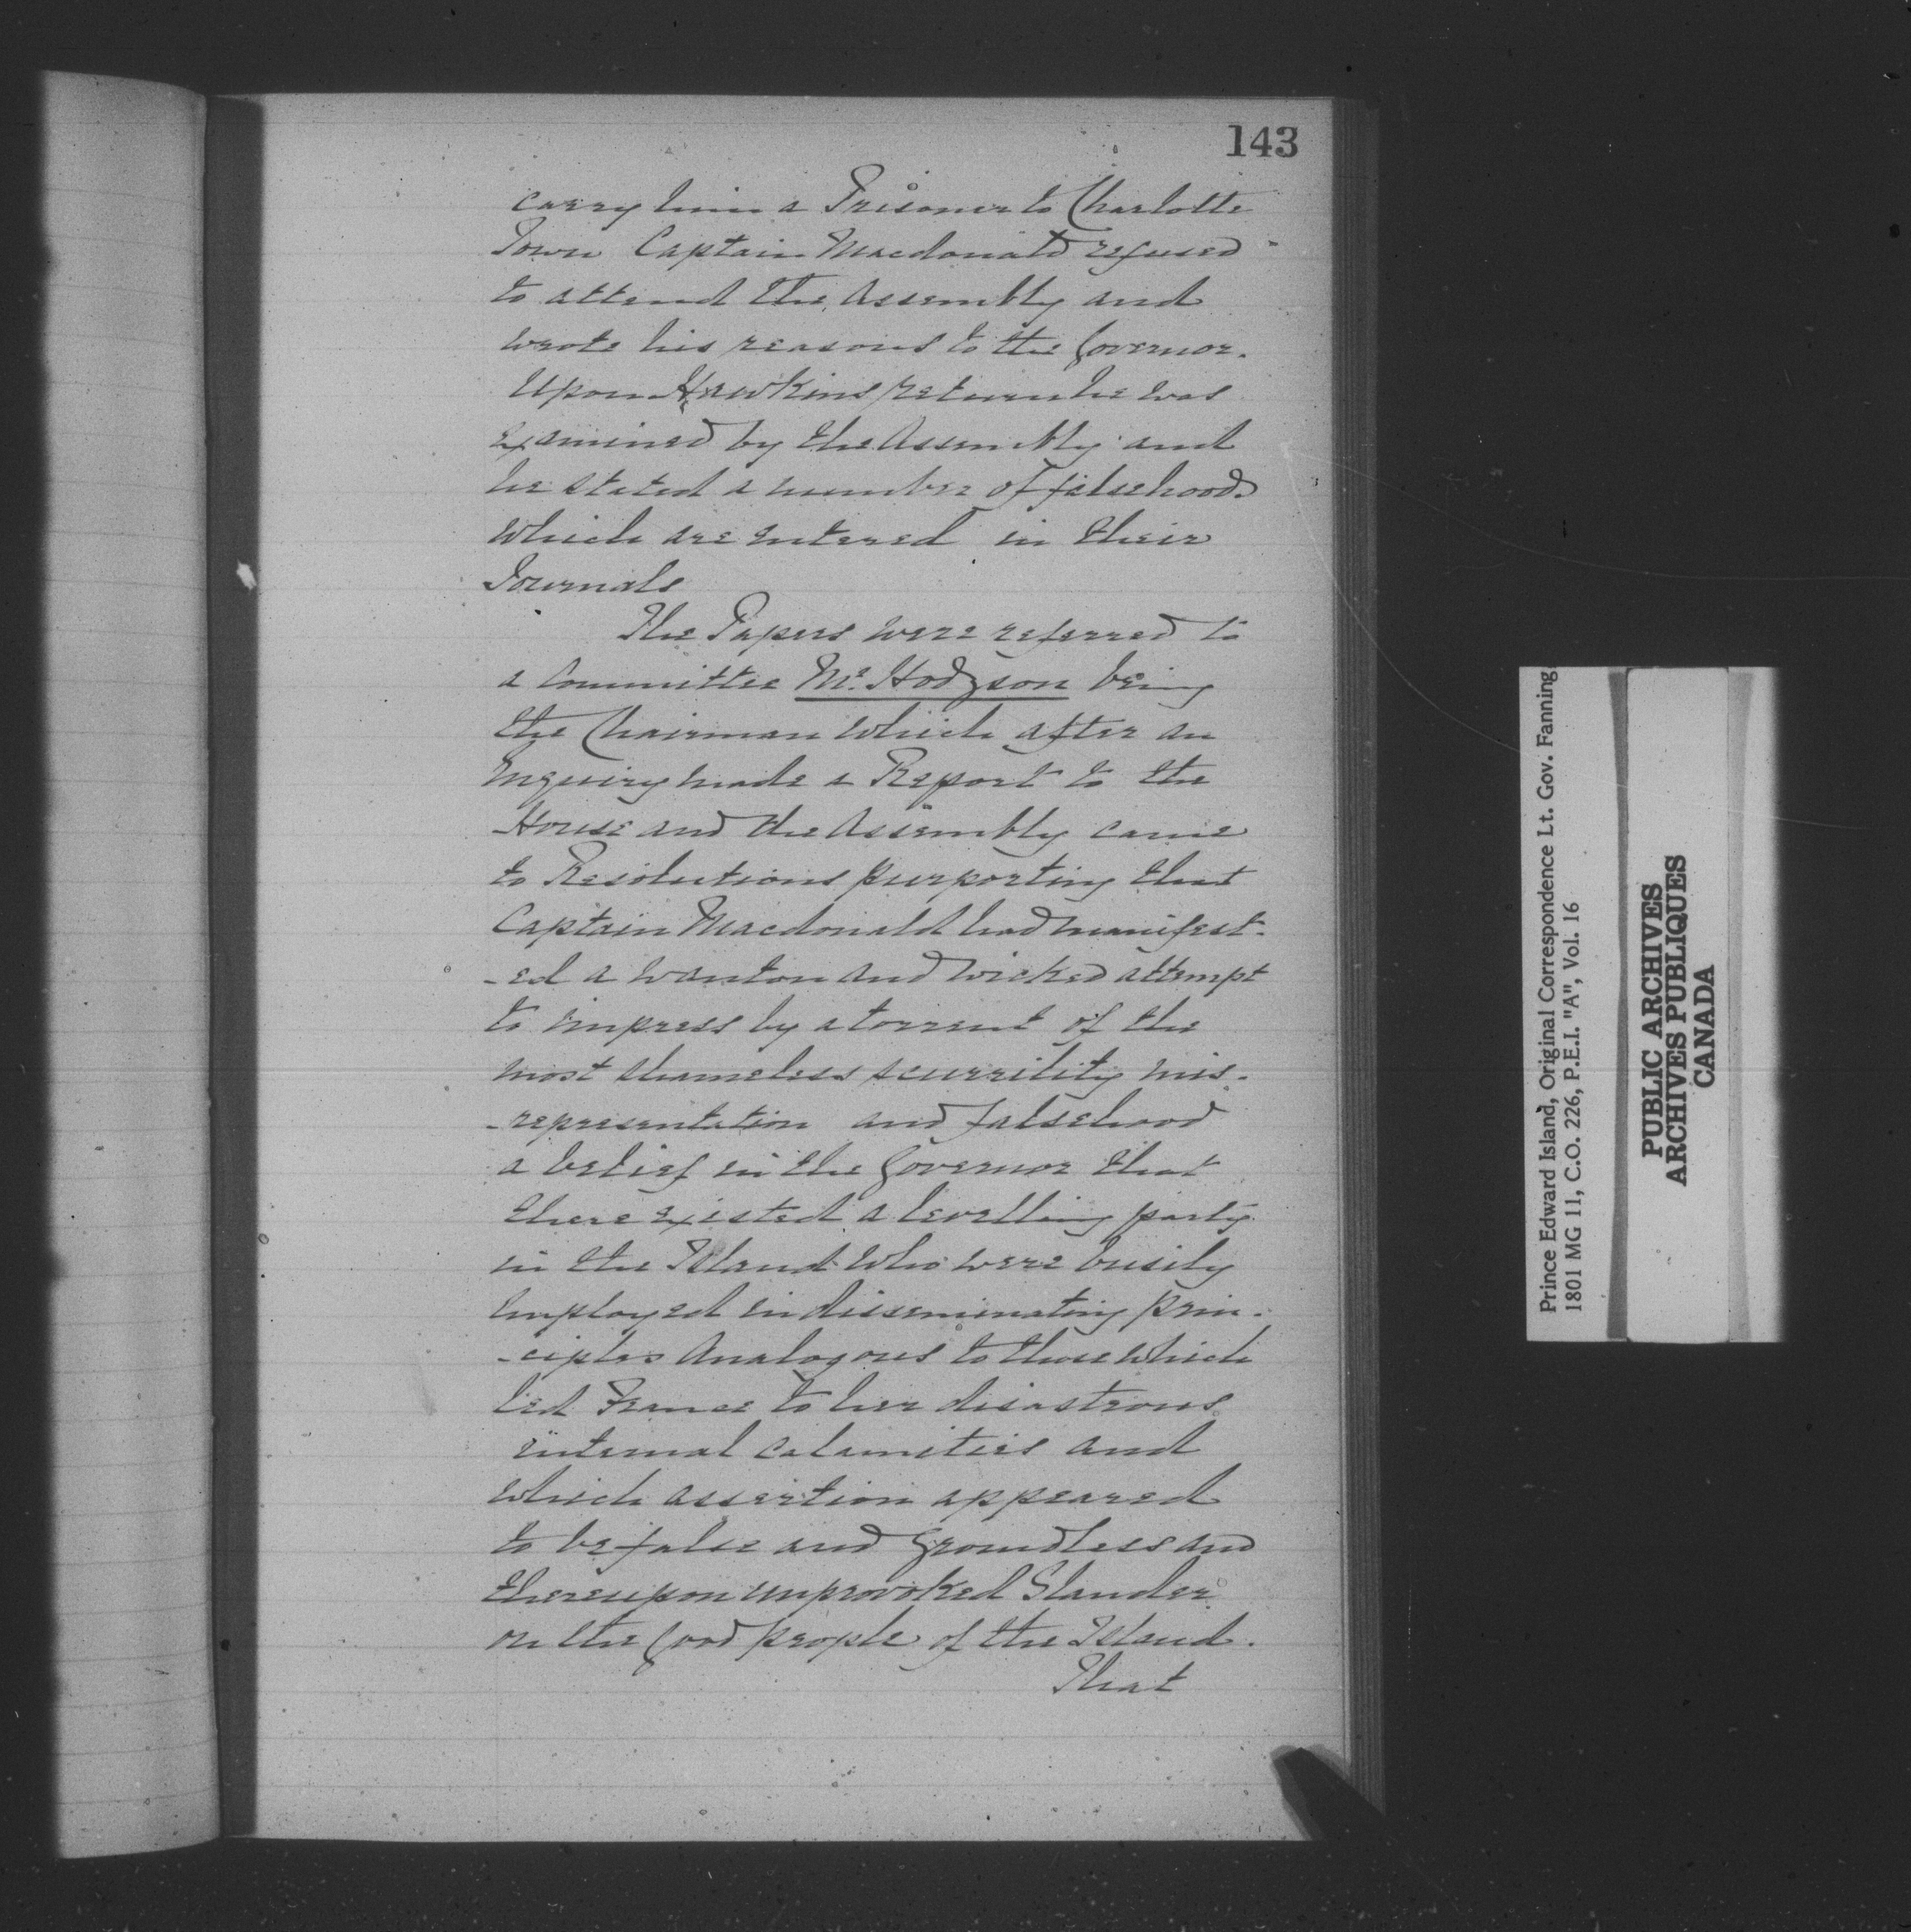 143
carry him a Prisoner to Charlotte
Town Captain Macdonald refused
to attend the Assembly and
wrote his reasons to the Governor.
Upon Hawkins return he was
examined by the Assembly and
he stated a number of falsehoods
which are entered in their
Journals
The Papers were referred to
a Committee Mr. Hodgson being
the Chairman which after an
Inquiry made a Report to the
House and the Assembly came
to Resolutions purporting that
Captain Macdonald had manifest-
-ed a wanton and wicked attempt
to impress by a torrent of the
most shameless scurrility mis-
-representation and falsehood
a belief in the Governor that
there existed a levelling party
in the Island who were busily
employed in disseminating prin-
-ciples Analogous to those which
led France to her disastrous
internal calamities and
which assertion appeared
to be false and groundless and
thereupon unprovoked Slander
on the good people of the Island.
That
Prince Edward Island, Original Correspondence Lt. Gov. Fanning
1801 MG 11, C.O. 226, P.E.I. "A", Vol. 16
PUBLIC ARCHIVES
ARCHIVES PUBLIQUES
CANADA